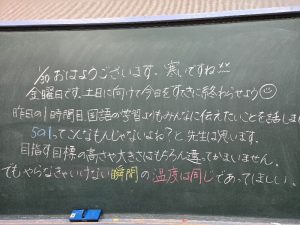 1/30 おはようございます。寒いですね
金曜日です。土日に向けて今日をすてきに終わらせよう
昨日の1時間目、国語の学習よりもみんなに伝えたいことを話しま
501ってこんなもんじゃないよね？と先生は思います。
目指す目標の高さや大きさはもちろん違ってかまいません。
でもやらなきゃいけない瞬間の温度は同じであってほしい。